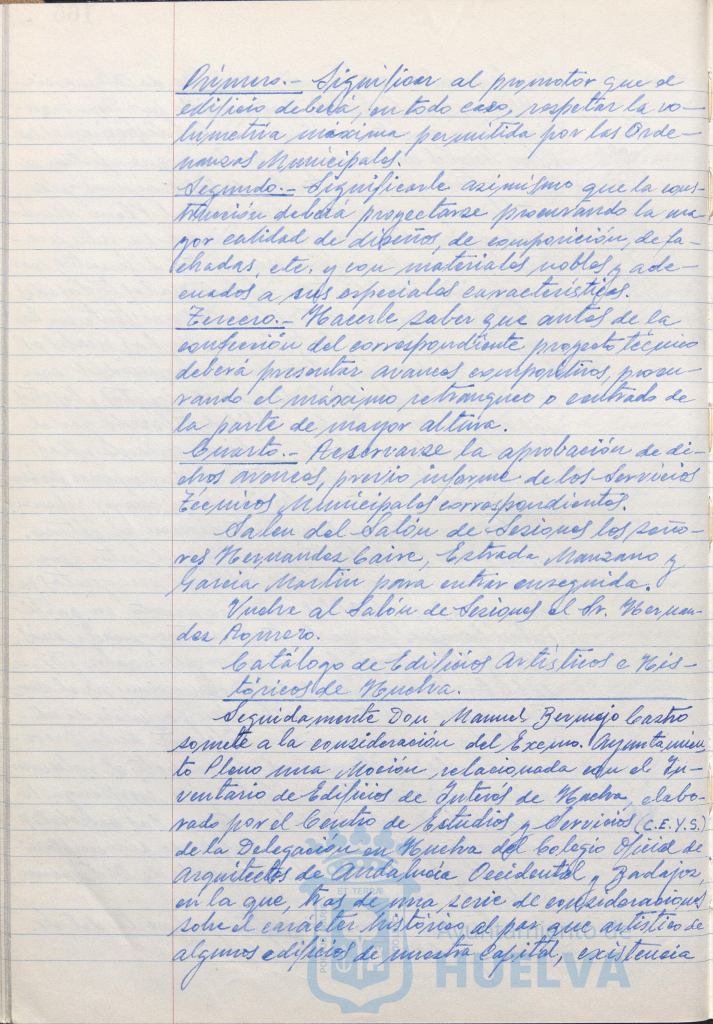 Primero.- Significar al promotor que el
edificio deberá, en todo caso, respetar la vo-
lumetria máxima permitida por las Orde-
nanzas Municipales.
Segundo.- Significarle asimismo que la cons-
trucción deberá proyectarse procurando la ma-
yor calidad de diseños, de composición, de fa-
chadas, etc. y con materiales nobles y ade-
cuados a sus especiales características.
Tercero.- Hacerle saber que antes de la
confección del correspondiente proyecto técnico
deberá presentar avances compositivos, procu-
rando el máximo retranqueo o centrado de
la parte de mayor altura.
Cuarto.- Reservarse la aprobación de di-
chos avances, previo informe de los Servicios
Técnicos Municipales correspondientes.
Salen del Salón de Sesiones los seño-
res Hernandez Caire, Estrada Manzano y
Garcia Martin para entrar enseguida.
Vuelve al Salón de Sesiones el Sr. Hernan-
dez Romero.
Catálogo de Edificios Artísticos e His-
tóricos de Huelva.
Seguidamente Don Manuel Bermejo Castro
somete a la consideración del Excmo. Ayuntamien-
to Pleno una Moción relacionada con el In-
ventario de Edificios de Interés de Huelva, elabo-
rado por el Centro de Estudios y Servicios (C.E.Y.S.)
de la Delegación en Huelva del Colegio Oficial de
Arquitectos de Andalucía Occidental y Badajoz,
en la que, tras de una serie de consideraciones
sobre el carácter histórico al par que artístico de
algunos edificios de nuestra Capital, existencia
Ayuntamiento
HUELVA